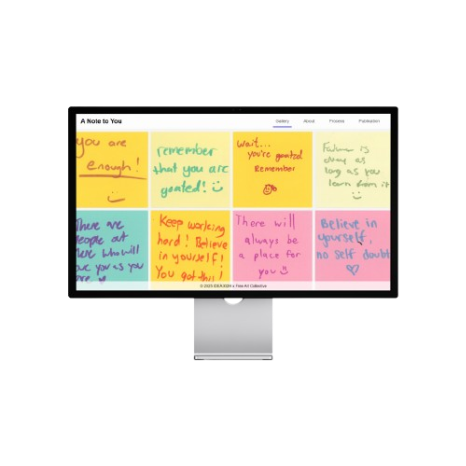 A Note to You
Gallery About Process Publication
you are
enough!
remember
that you are
goated!
wait...
you're goated
Remember
Failure is
okay as
long as you
learn from it
There are
people out
there who will
love you as you
are
Keep working
hard! Believe
in yourself!
You got this!
There will
always be
a place for
you
Believe in
yourself,
no self doubt
© 2025 Fine Art Collective